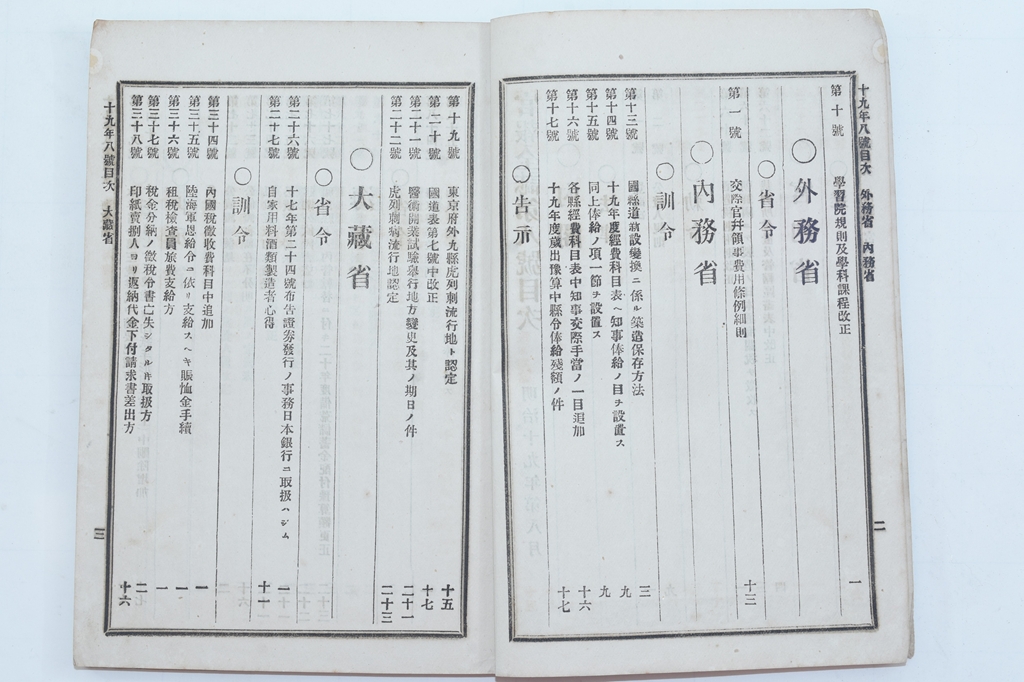 十九年八號目次 外務省 內務省
第十號 學習院規則及學科課程改正 一
○外務省
○省令
第一號 交際官幷領事費用條例細則 十三
○內務省
○訓令
第十三號 國縣道新設變換ニ係ル築造保存方法 三
第十四號 十九年度經費科目表ヘ知事俸給ノ目ヲ設置ス 九
第十五號 同上俸給ノ項一節ヲ設置ス 九
第十六號 各縣經費科目表中知事交際手當ノ一目追加 十六
第十七號 十九年度歲出豫算中縣令俸給殘額ノ件 十七
○告示
二
第十九號 東京府外九縣虎列刺流行地ト認定 十五
第二十號 國道表第七號中改正 十七
第二十一號 醫術開業試驗擧行地方變更及其ノ期日ノ件 二十一
第二十二號 虎列刺病流行地認定 二十三
○大藏省
○省令
第二十六號 十七年第二十四號布告證券發行ノ事務日本銀行ニ取扱ハシム 一
第二十七號 自家用料酒類製造者心得 十一
○訓令
第三十四號 內國稅徵收費科目中追加 一
第三十五號 陸海軍恩給令ニ依リ支給スヘキ賑恤金手續 一
第三十六號 租稅檢查員旅費支給方 一
第三十七號 稅金分納ノ徵稅令書亡失シタルトキ取扱方 二
第三十八號 印紙賣捌人ヨリ返納代金下付請求書差出方 十六
十九年八號目次 大藏省
三